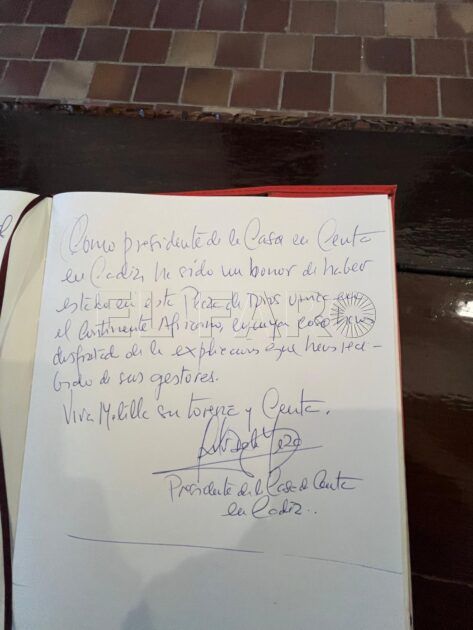 Como presidente de la Casa en Ceuta
en Cadiz, ha sido un honor de haber
estado en esta Plaza de Toros unica en
el Continente Africano,
disfrutad de la explicacion que hemos reci-
bido de sus gestores.
Viva Melilla su torera y Ceuta.
Presidente de la Casa de Ceuta
en Cadiz..
EL FARO